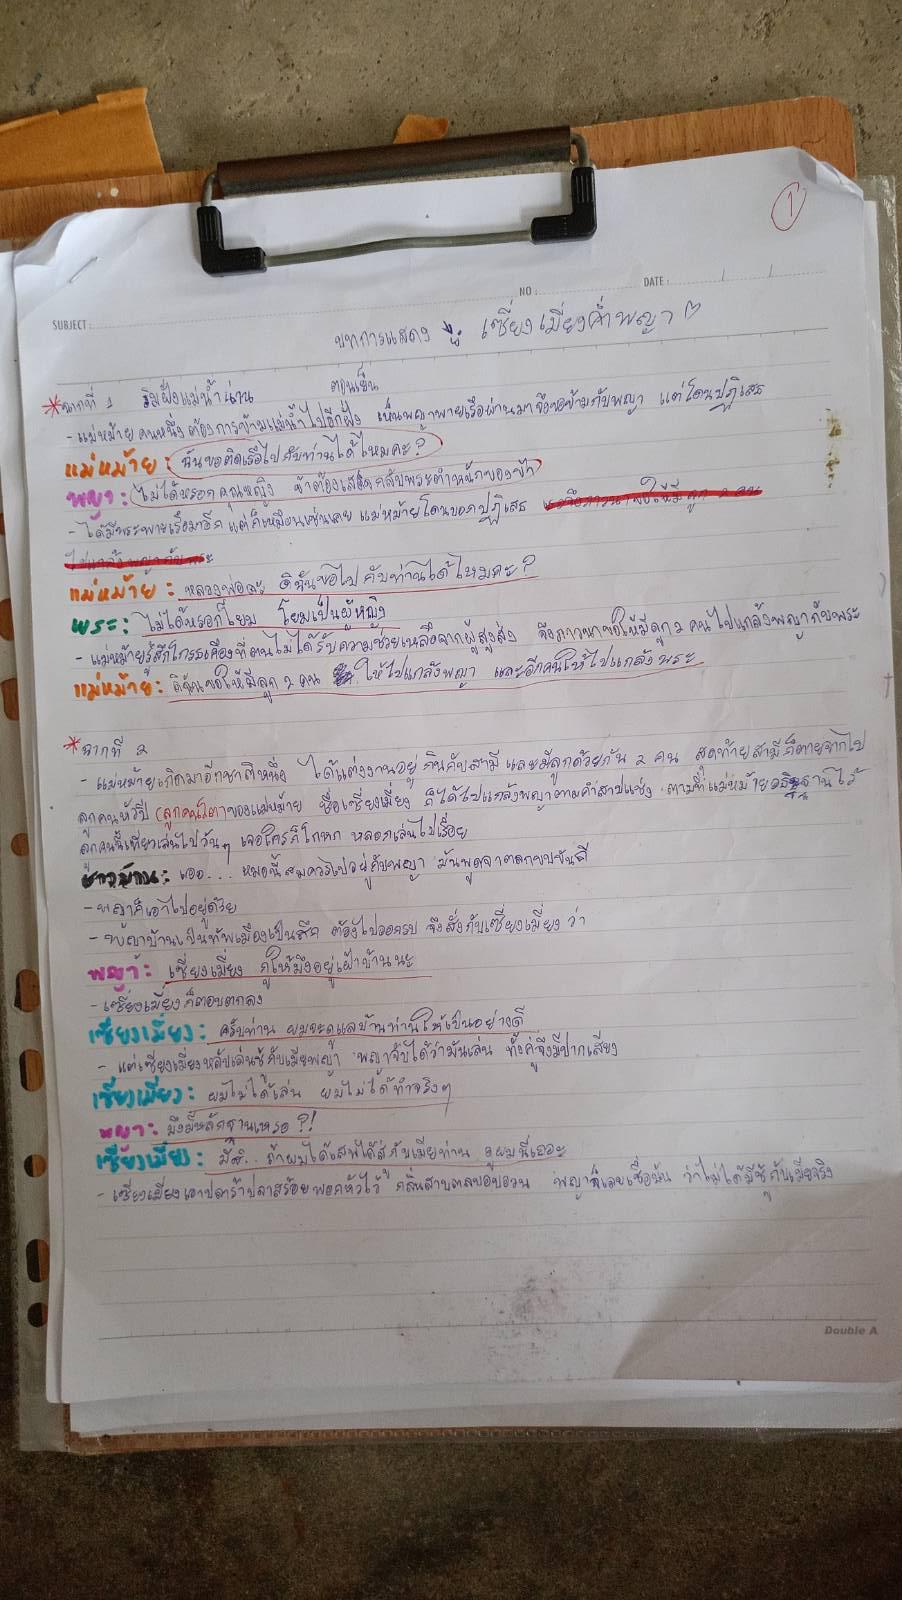 1
NO :
DATE : / /
SUBJECT :
บทการแสดง : เซี่ยงเมี่ยงค่ำพญา
*ฉากที่ 1 ริมฝั่งแม่น้ำน่าน ตอนเย็น
- แม่หม้ายคนหนึ่งต้องการข้ามแม่น้ำไปอีกฝั่ง เห็นพญาพายเรือผ่านมาจึงขอข้ามกับพญา แต่โดนปฏิเสธ
แม่หม้าย : ฉันขอติดเรือไปกับท่านได้ไหมคะ?
พญา : ไม่ได้หรอกคุณหญิง ข้าต้องเสด็จกลับพระตำหนักของข้า
- ได้มีพระพายเรือมาอีก แต่ก็เหมือนเช่นเคย แม่หม้ายโดนบอกปฏิเสธ
แม่หม้าย : หลวงพ่อคะ ดิฉันขอไปกับท่านได้ไหมคะ?
พระ : ไม่ได้หรอกโยม โยมเป็นผู้หญิง
- แม่หม้ายรู้สึกโกรธเคืองที่ตนไม่ได้รับความช่วยเหลือจากผู้สูงส่ง จึงภาวนาขอให้มีลูก 2 คนไปแกล้งพญากับพระ
แม่หม้าย : ดิฉันขอให้มีลูก 2 คน ให้ไปแกล้งพญา และอีกคนให้ไปแกล้งพระ
*ฉากที่ 2
- แม่หม้ายเกิดมาอีกชาติหนึ่ง ได้แต่งงานอยู่กินกับสามี และมีลูกด้วยกัน 2 คน สุดท้ายสามีก็ตายจากไป
ลูกคนหัวปี (ลูกคนโต) ของแม่หม้าย ชื่อเซี่ยงเมี่ยง ก็ได้ไปแกล้งพญาตามคำสาปแช่ง ตามที่แม่หม้ายอธิษฐานไว้
ลูกคนนี้เที่ยวเล่นไปวันๆ เจอใครก็โกหก หลอกเล่นไปเรื่อย
ชาวบ้าน : เออ... หมอนี้สมควรไปอยู่กับพญา มันพูดจาตลกขบขันดี
- พญาก็เอาไปอยู่ด้วย
- พญาบ้านเป็นทัพเมืองเป็นศึก ต้องไปออกรบ จึงสั่งกับเซี่ยงเมี่ยงว่า
พญา : เซี่ยงเมี่ยง กูให้มึงอยู่เฝ้าบ้านนะ
- เซี่ยงเมี่ยงก็ตอบตกลง
เซี่ยงเมี่ยง : ครับท่าน ผมจะดูแลบ้านท่านให้เป็นอย่างดี
- แต่เซี่ยงเมี่ยงหลับเล่นชู้กับเมียพญา พญาจับได้ว่ามันเล่น ทั้งคู่จึงมีปากเสียง
เซี่ยงเมี่ยง : ผมไม่ได้เล่น ผมไม่ได้ทำจริงๆ
พญา : มึงมีหลักฐานเหรอ?!
เซี่ยงเมี่ยง : มีสิ.. ถ้าผมได้เสพได้สู่กับเมียท่าน ดูผมนี่เถอะ
- เซี่ยงเมี่ยงเอาปลาร้าปลาสร้อยพอกหัวไว้ กลิ่นสาบตลบอบอวน พญาก็เลยเชื่อมัน ว่าไม่ได้มีชู้กับเมียจริง
Double A